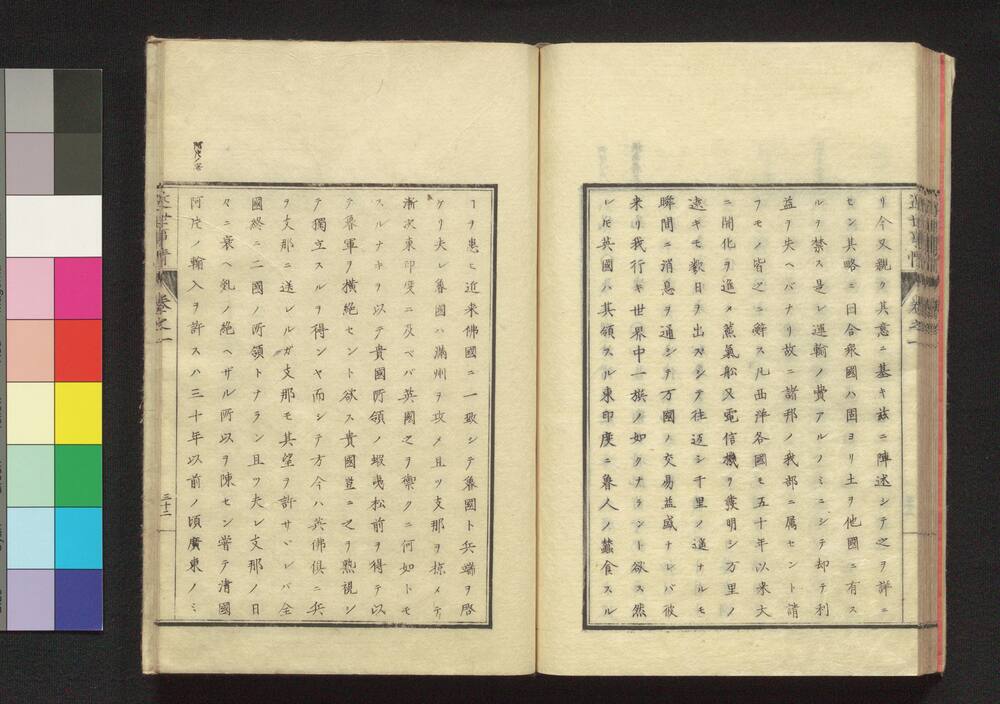 リ今又親ク其意ニ基キ玆ニ陣述シテ之ヲ詳ニ
セン其略ニ曰合衆國ハ固ヨリ土ヲ他國ニ有ス
ルヲ禁ス是レ運輸ノ費アルノミニシテ却テ利
益ヲ失ヘバナリ故ニ諸邦ノ我部ニ属セント請
フモノ皆之ニ辭ス凡西洋各國モ五十年以来大
ニ開化ヲ進メ蒸氣船又電信機ヲ發明シ万里ノ
遠キモ數日ヲ出スシテ往返シ千里ノ遙ナルモ
瞬間ニ消息ヲ通シテ万國ノ交易益盛ナレバ彼
来リ我行キ世界中一族ノ如クナラント欲ス然
レ𪜈英國ハ其領スル東印度ニ魯人ノ蠶食スル
ヿヲ患ヒ近来佛國ニ一致シテ魯國ト兵端ヲ啓
ケリ夫レ魯國ハ滿州ヲ攻メ且ツ支那ヲ掠メテ
漸次東印度ニ及ベバ英國之ヲ禦クニ何如トモ
スルナキヲ以テ貴國所領ノ蝦夷松前ヲ得テ以
テ魯軍ヲ横絶セント欲ス貴國豈ニ之ヲ黙視シ
テ獨立スルヲ得ンヤ而シテ方今ハ英佛俱ニ兵
ヲ支那ニ送レルガ支那モ其望ヲ許サヾレバ全
國終ニ二國ノ所領トナラン且フ夫レ支那ノ日
々ニ衰ヘ乱ノ絶ヘザル所以ヲ陳セン甞テ清國
阿片ノ輸入ヲ許スハ三十年以前ノ頃廣東ノミ
阿片ノ害
巻之一
三十二